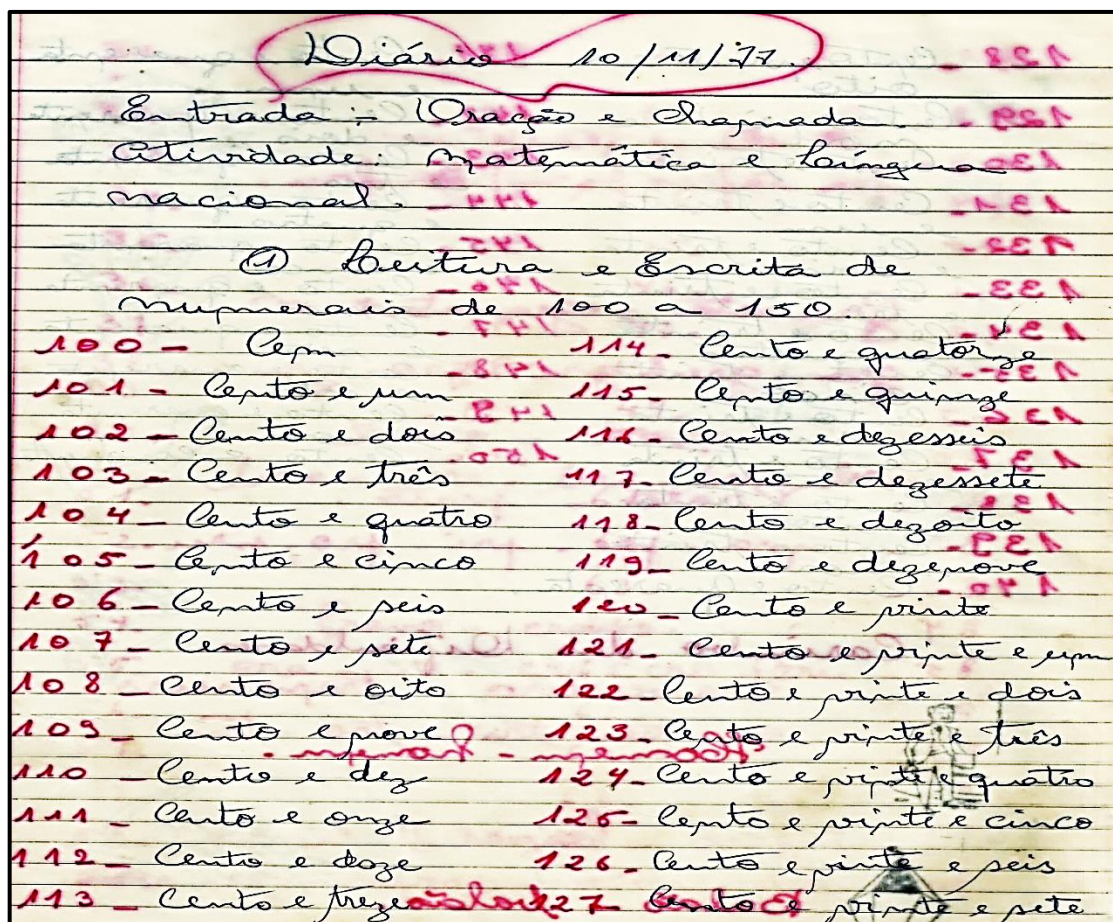 Diário 10/11/77.
Entrada: Oração e chamada.
Atividade: Matemática e Língua
nacional.
① Leitura e Escrita de
numerais de 100 a 150.
100 - Cem
101 - Cento e um
102 - Cento e dois
103 - Cento e três
104 - Cento e quatro
105 - Cento e cinco
106 - Cento e seis
107 - Cento e sete
108 - Cento e oito
109 - Cento e nove
110 - Cento e dez
111 - Cento e onze
112 - Cento e doze
113 - Cento e treze
114 - Cento e quatorze
115 - Cento e quinze
116 - Cento e dezesseis
117 - Cento e dezessete
118 - Cento e dezoito
119 - Cento e dezenove
120 - Cento e vinte
121 - Cento e vinte e um
122 - Cento e vinte e dois
123 - Cento e vinte e três
124 - Cento e vinte e quatro
125 - Cento e vinte e cinco
126 - Cento e vinte e seis
127 - Cento e vinte e sete